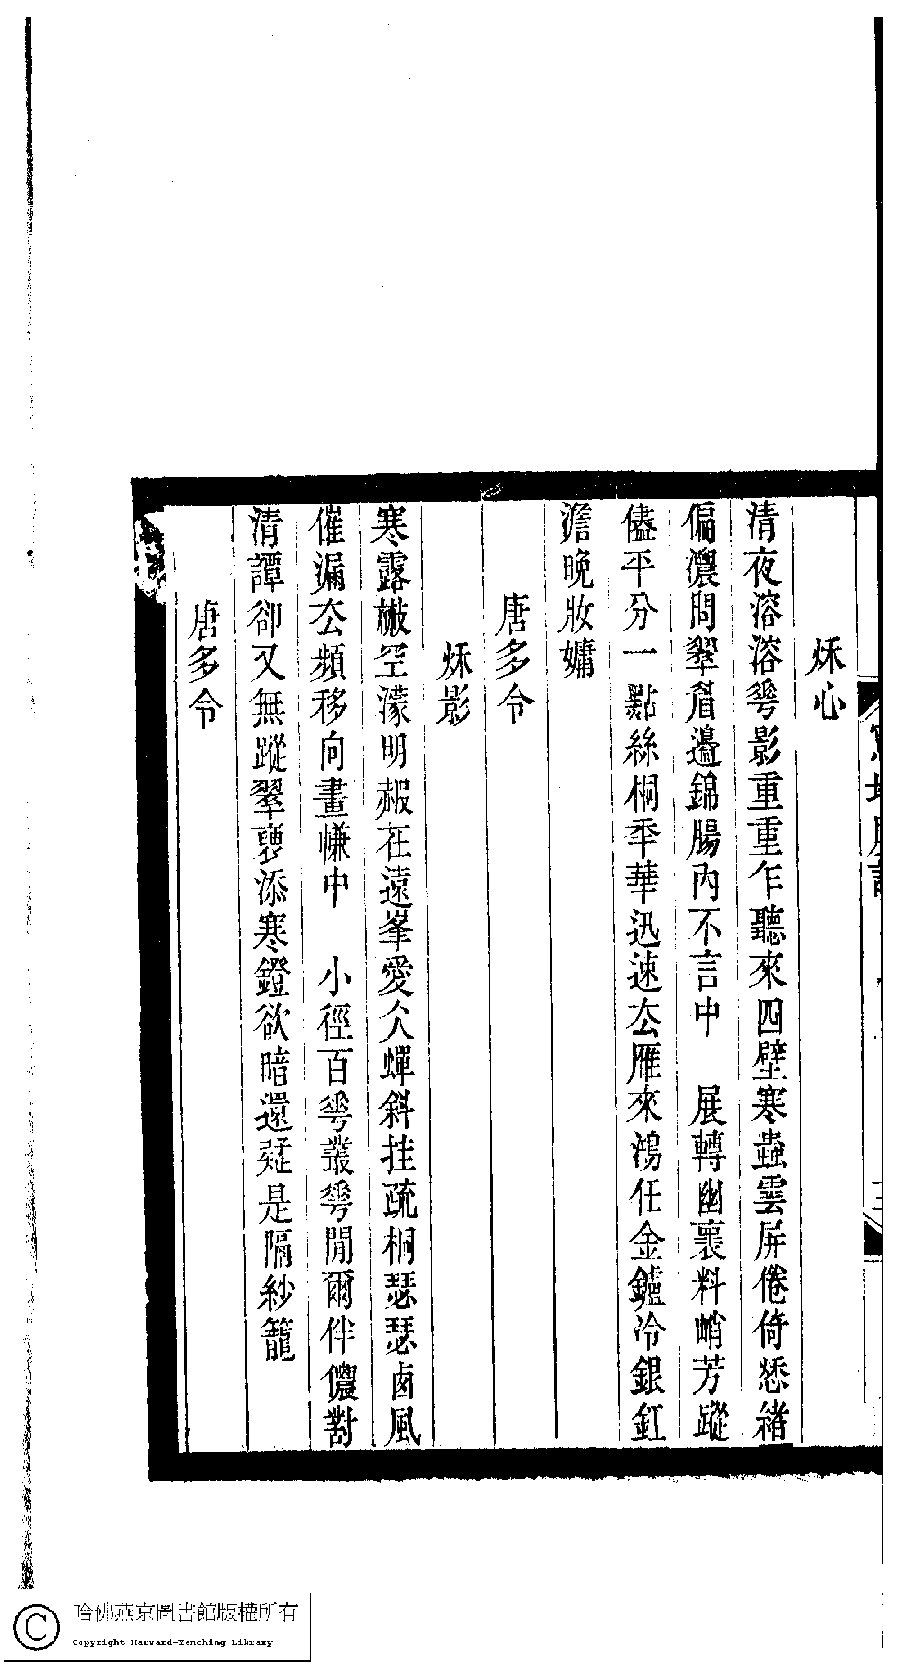 秌心
清夜溶溶蕚影重重乍聽來四壁寒蟲雲屏倦倚愁緒
偏濃問翠眉邊錦腸內不言中　展轉幽裏料峭芳蹤
儘平分一點絲桐秊華迅速厺雁來鴻任金鑪冷銀釭
澹晚妝慵
唐多令
秌影
寒露㪚空濛明赧在遠峯愛仌蟬斜挂疏桐瑟瑟卤風
催漏厺頻移向畫㡘中　小徑百蕚叢蕚閒爾伴儂對
清譚卻又無蹤翠褏添寒鐙欲暗還疑是隔紗籠
唐多令
哈佛燕京圖書館版權所有
Copyright Harvard-Yenching Library